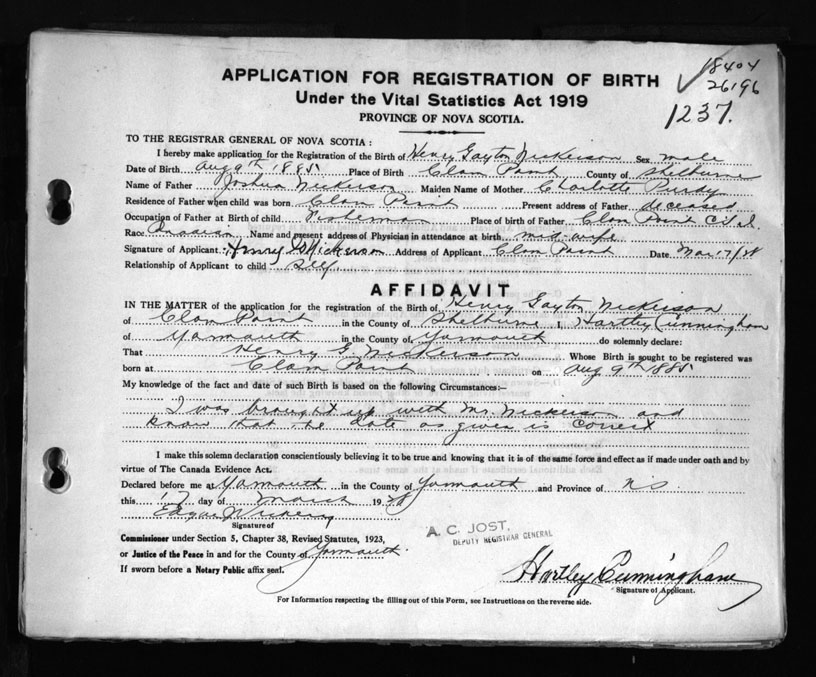 18404
26196
1237.
APPLICATION FOR REGISTRATION OF BIRTH
Under the Vital Statistics Act 1919
PROVINCE OF NOVA SCOTIA.
TO THE REGISTRAR GENERAL OF NOVA SCOTIA:
I hereby make application for the Registration of the Birth of Henry Gayton Nickerson Sex male
Date of Birth Aug 9th 1885 Place of Birth Clam Point County of Shelburne
Name of Father Joshua Nickerson Maiden Name of Mother Charlotte Purdy
Residence of Father when child was born Clam Point Present address of Father deceased
Occupation of Father at Birth of child Fisherman Place of Birth of Father Clam Point C.S.I.
Race Canadian Name and present address of Physician in attendance at birth mid-wife
Signature of Applicant: Henry G Nickerson Address of Applicant Clam Point Date Mar 17/28
Relationship of Applicant to child Self
AFFIDAVIT
IN THE MATTER of the application for the registration of the Birth of Henry Gayton Nickerson
of Clam Point in the County of Shelburne I, Hartley Cunningham
of Yarmouth in the County of Yarmouth do solemnly declare:
That Henry G. Nickerson Whose Birth is sought to be registered was
born at Clam Point on Aug 9th 1885
My knowledge of the fact and date of such Birth is based on the following Circumstances:
I was brought up with Mr. Nickerson and
know that the date as given is correct
I make this solemn declaration conscientiously believing it to be true and knowing that it is of the same force and effect as if made under oath and by
virtue of The Canada Evidence Act.
Declared before me at Yarmouth in the County of Yarmouth and Province of NS
this 17 day of March 1928
Edgar Vickery
Signature of
Commissioner under Section 5, Chapter 38, Revised Statutes, 1923,
or Justice of the Peace in and for the County of Yarmouth.
If sworn before a Notary Public affix seal.
A. C. JOST,
DEPUTY REGISTRAR GENERAL
Hartley Cunningham
Signature of Applicant.
For Information respecting the filling out of this Form, see Instructions on the reverse side.